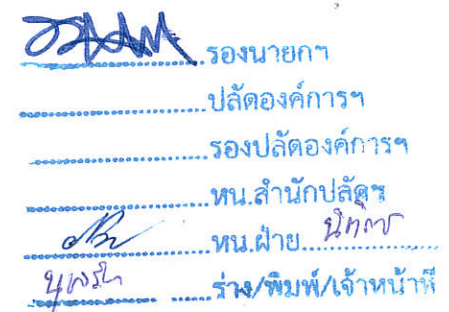 รองนายกฯ
ปลัดองค์การฯ
รองปลัดองค์การฯ
หน.สำนักปลัดฯ
หน.ฝ่าย นิติการ
ร่าง/พิมพ์/เจ้าหน้าที่